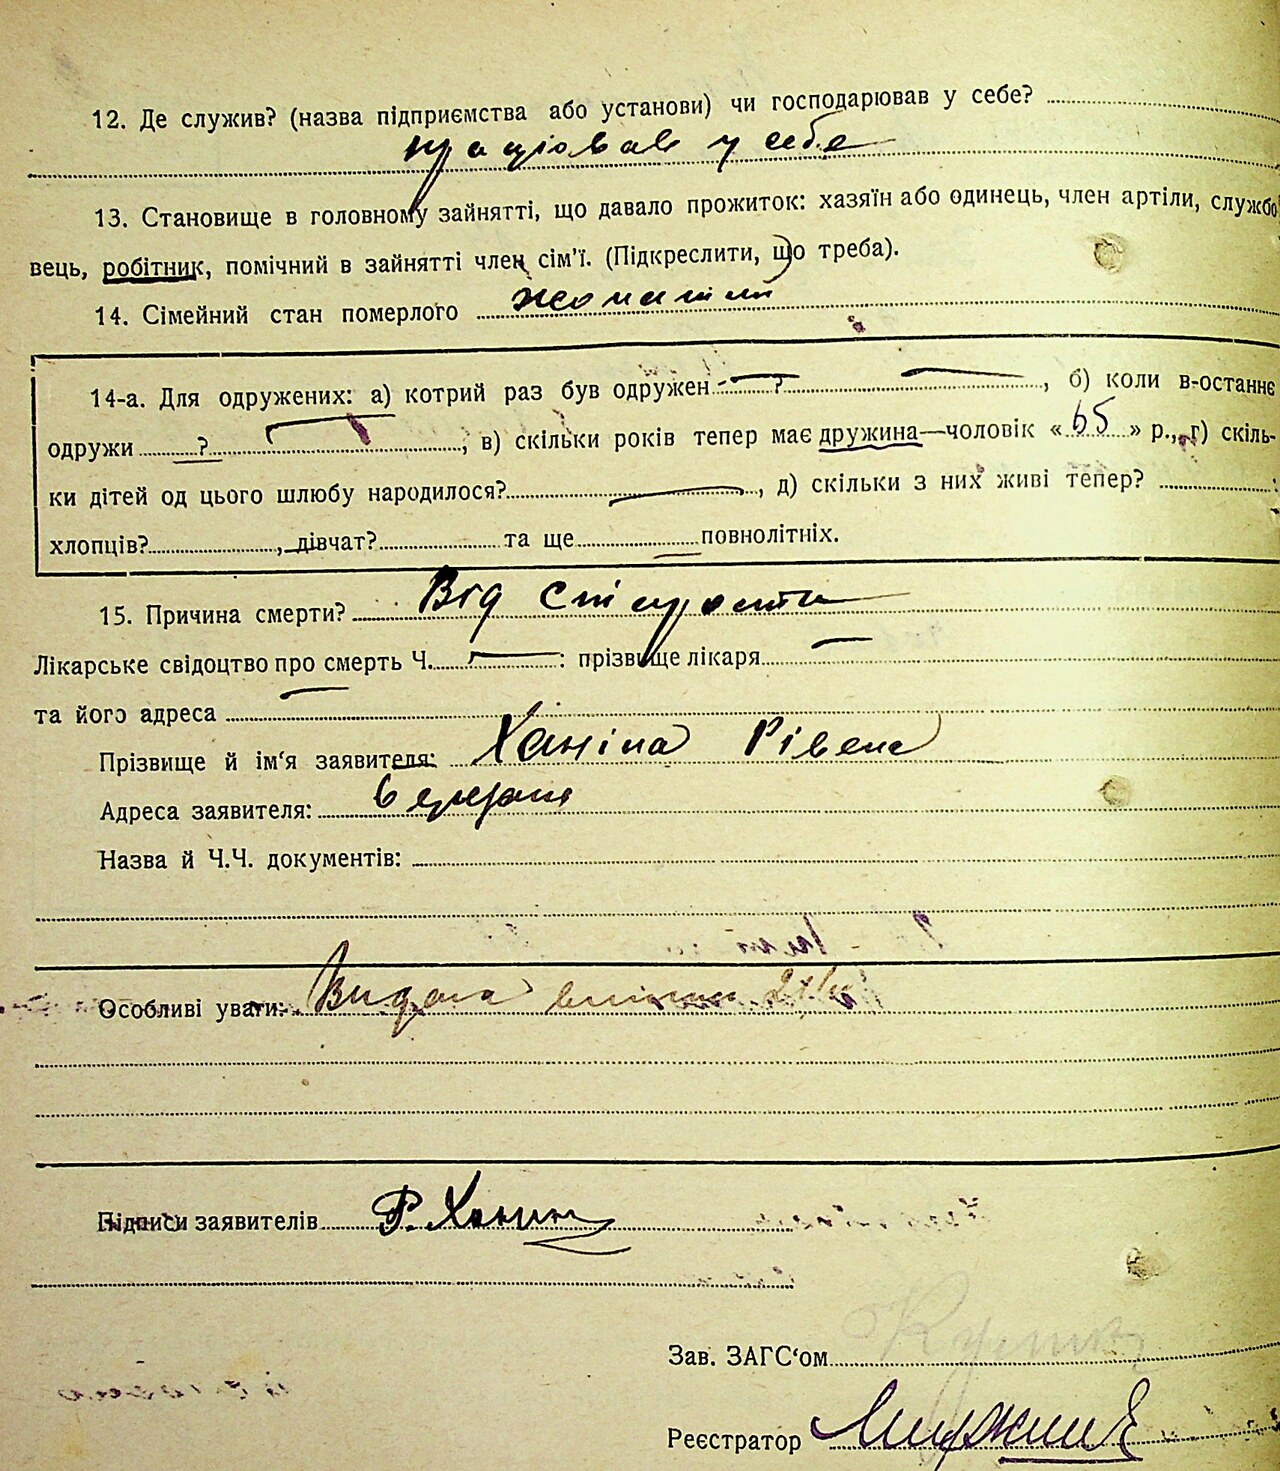 12. Де служив? (назва підприємства або установи) чи господарював у себе?
працював у себе
13. Становище в головному зайнятті, що давало прожиток: хазяїн або одинець, член артіли, службо-
вець, робітник, помічний в зайнятті член сім'ї. (Підкреслити, що треба).
14. Сімейний стан померлого жонатий
14-а. Для одружених: а) котрий раз був одружен ?, б) коли в-останнє
одружи ?, в) скільки років тепер має дружина—чоловік « 65 » р., г) скіль-
ки дітей од цього шлюбу народилося?, д) скільки з них живі тепер? :
хлопців?, дівчат? та ще повнолітніх.
15. Причина смерти? Від старости
Лікарське свідоцтво про смерть Ч. : прізвище лікаря
та його адреса
Прізвище й ім'я заявителя: Ханіна Рівена
Адреса заявителя:
Назва й Ч.Ч. документів:
Особливі уваги: Видана
Підписи заявителів Р. Ханин
Зав. ЗАГС'ом
Реєстратор